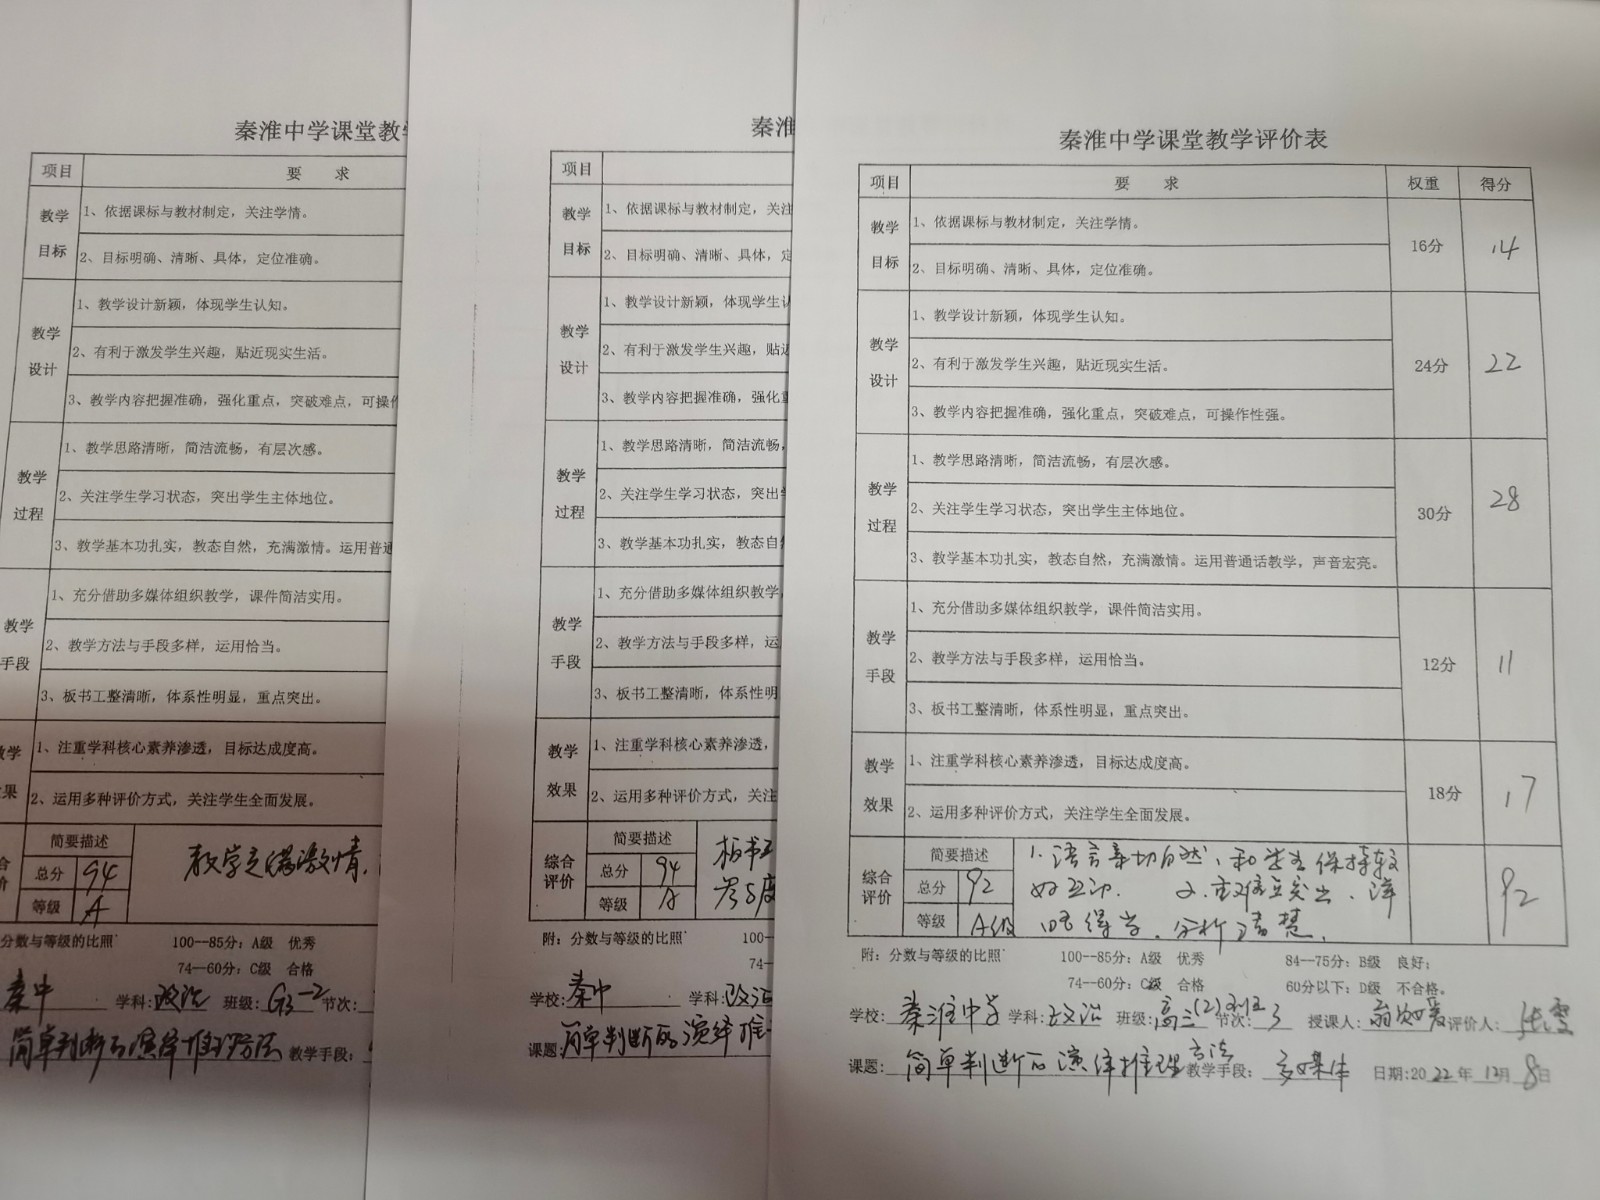 秦淮中学课堂教学
项目 要 求
教学目标
1、依据课标与教材制定，关注学情。
2、目标明确、清晰、具体，定位准确。
教学设计
1、教学设计新颖，体现学生认知。
2、有利于激发学生兴趣，贴近现实生活。
3、教学内容把握准确，强化重点，突破难点，可操作
教学过程
1、教学思路清晰，简洁流畅，有层次感。
2、关注学生学习状态，突出学生主体地位。
3、教学基本功扎实，教态自然，充满激情。运用普通
教学手段
1、充分借助多媒体组织教学，课件简洁实用。
2、教学方法与手段多样，运用恰当。
3、板书工整清晰，体系性明显，重点突出。
教学效果
1、注重学科核心素养渗透，目标达成度高。
2、运用多种评价方式，关注学生全面发展。
简要描述
总分 94
等级 A
教学充满激情，
分数与等级的比照 100--85分：A级 优秀
74--60分：C级 合格
秦中 学科：政治 班级：G3-2 节次：
简单判断的演绎推理方法 教学手段：
秦淮
项目
教学目标
1、依据课标与教材制定，关注
2、目标明确、清晰、具体，定
教学设计
1、教学设计新颖，体现学生认
2、有利于激发学生兴趣，贴近
3、教学内容把握准确，强化重
教学过程
1、教学思路清晰，简洁流畅，
2、关注学生学习状态，突出学
3、教学基本功扎实，教态自然
教学手段
1、充分借助多媒体组织教学
2、教学方法与手段多样，运
3、板书工整清晰，体系性明
教学效果
1、注重学科核心素养渗透，
2、运用多种评价方式，关注
综合评价
简要描述
总分 94
等级 A
板书工
附：分数与等级的比照 100--
74--
学校：秦中 学科：政治
课题：简单判断的演绎推
秦淮中学课堂教学评价表
项目 要 求 权重 得分
教学目标
1、依据课标与教材制定，关注学情。
2、目标明确、清晰、具体，定位准确。
16分 14
教学设计
1、教学设计新颖，体现学生认知。
2、有利于激发学生兴趣，贴近现实生活。
3、教学内容把握准确，强化重点，突破难点，可操作性强。
24分 22
教学过程
1、教学思路清晰，简洁流畅，有层次感。
2、关注学生学习状态，突出学生主体地位。
3、教学基本功扎实，教态自然，充满激情。运用普通话教学，声音宏亮。
30分 28
教学手段
1、充分借助多媒体组织教学，课件简洁实用。
2、教学方法与手段多样，运用恰当。
3、板书工整清晰，体系性明显，重点突出。
12分 11
教学效果
1、注重学科核心素养渗透，目标达成度高。
2、运用多种评价方式，关注学生全面发展。
18分 17
综合评价
简要描述
总分 92
等级 A级
1. 语言亲切自然、和学生保持较
好互动. 2. 重难点突出、详
略得当、分析清楚.
92
附：分数与等级的比照 100--85分：A级 优秀 84--75分：B级 良好；
74--60分：C级 合格 60分以下：D级 不合格。
学校：秦淮中学 学科：政治 班级：高三(2) 节次：3 授课人： 评价人：
课题：简单判断的演绎推理方法 教学手段：多媒体 日期：2022年12月8日